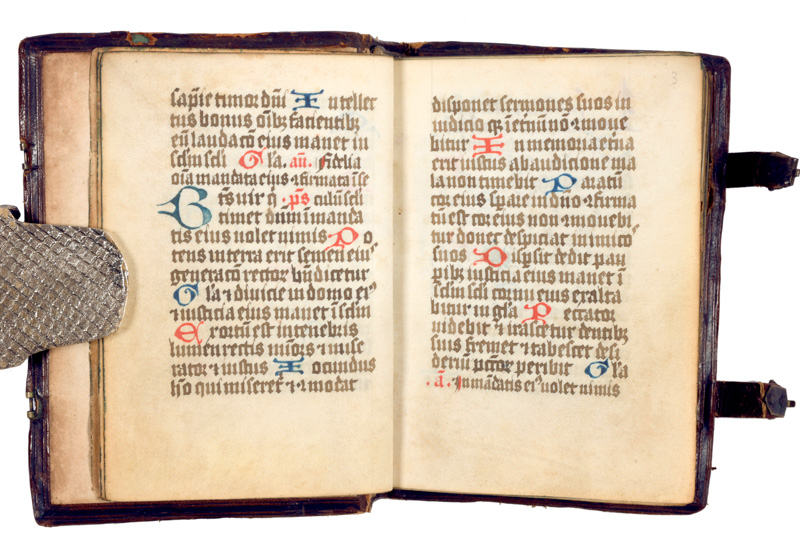 sapīe timor dñi In teller
tus bonus oīb facientib
eū laudacō eius manet in
sclm scli Gla. an̄. Fidelia
oīa mandata eius 9firmata ī se
Btūs vir q̄ .ps̄ culū scli
timet dūm ī manda
tis eius volet nimis Po
tens in terra erit semen eiu9
generacō rector bn̄dicetur
Gla ⁊ divicie in domo ei9
⁊ iusticia eius manet ī sclm
Exortū est in tenebris
lumen rectis mīcors ⁊ mise
rator ⁊ iustus Iocundus
hō qui miseret̄ ⁊ 9modat
3
disponet sermones suos in
iudicio q ī etnū nō 9move
bitur In memoria etna
erit iustus ab audicione ma
la non timebit Paratū
cor eius spare in dno 9firma
tū est cor eius non 9movebi
tur donec despiciat inimico9
suos Dispsit dedit pau
pib iusticia eius manet ī
sclm scli cornu eius exalta
bitur in gla Peccator
videbit ⁊ irascetur dentib
suis fremet ⁊ tabescet desi
deriū pctor peribit Gla
.ā. In mādatis ei9 volet nimis